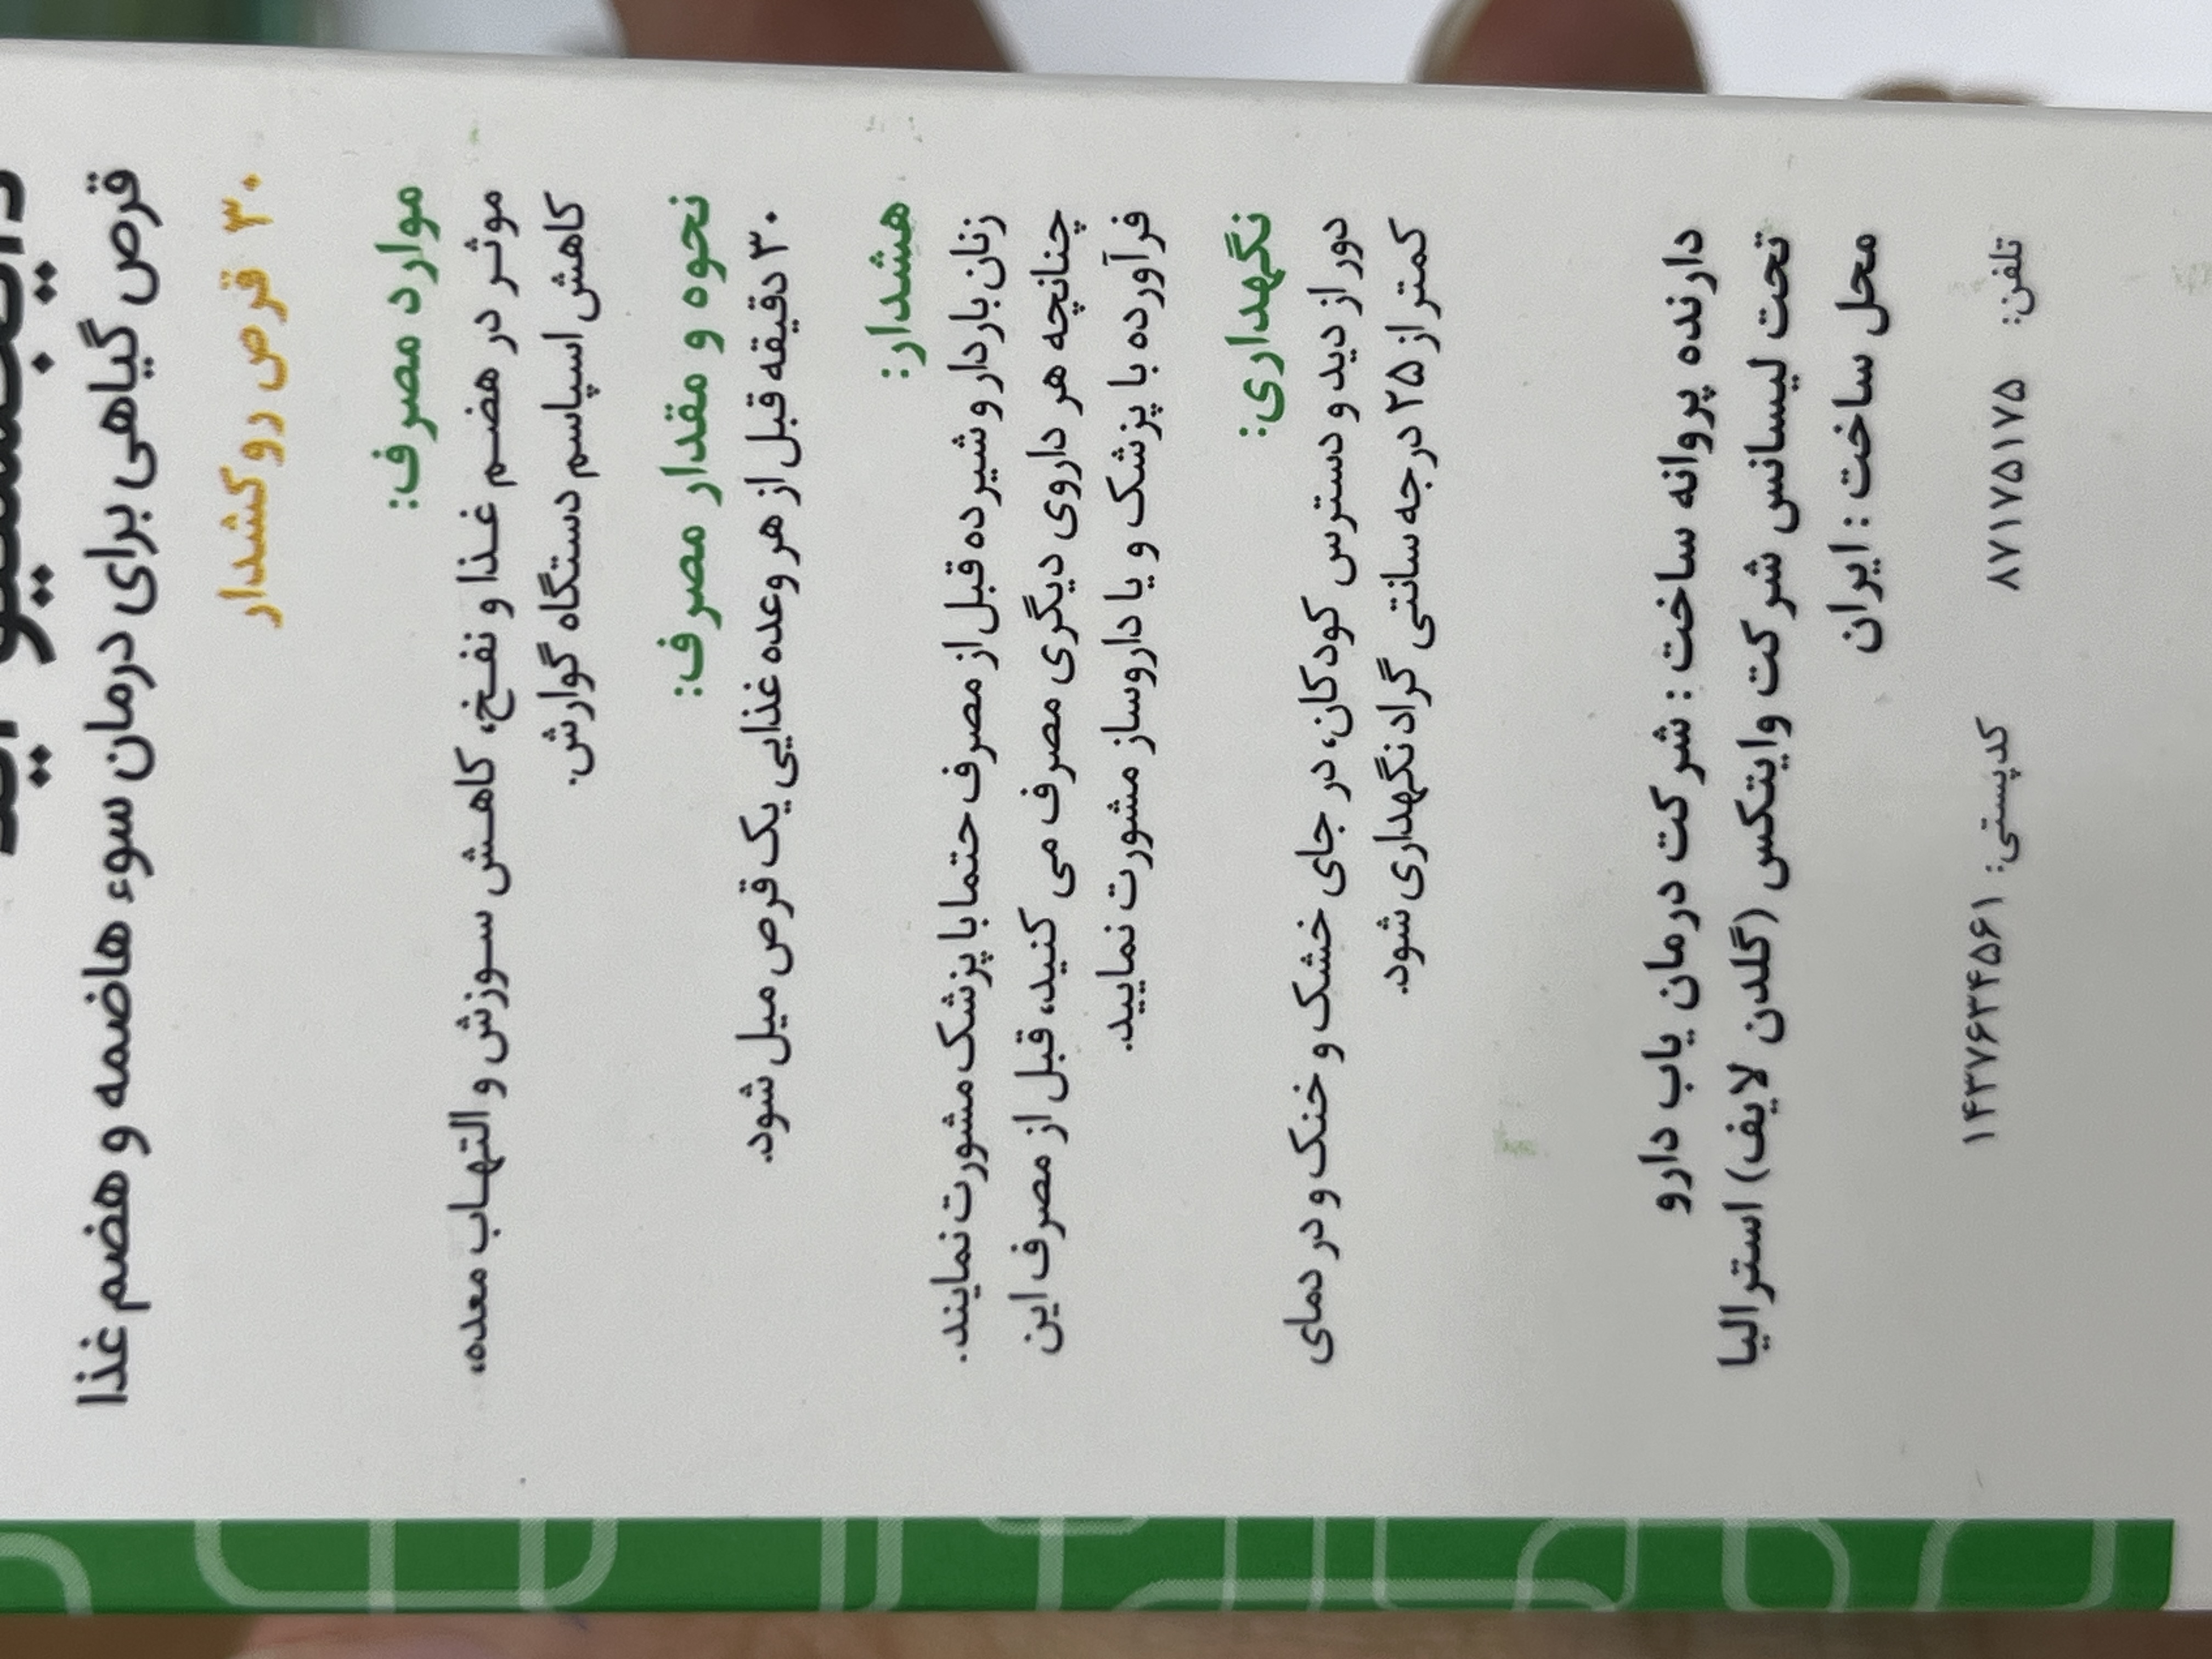 قرص گیاهی برای درمان سوء هاضمه و هضم غذا
۳۰ قرص روکشدار
موارد مصرف:
موثر در هضم غذا و نفخ، کاهش سوزش و التهاب معده،
کاهش اسپاسم دستگاه گوارش.
نحوه و مقدار مصرف:
۳۰ دقیقه قبل از هر وعده غذایی یک قرص میل شود.
هشدار:
زنان باردار و شیرده قبل از مصرف حتما با پزشک مشورت نمایند.
چنانچه هر داروی دیگری مصرف می کنید، قبل از مصرف این
فرآورده با پزشک و یا داروساز مشورت نمایید.
نگهداری:
دور از دید و دسترس کودکان، در جای خشک و خنک و در دمای
کمتر از ۲۵ درجه سانتی گراد نگهداری شود.
دارنده پروانه ساخت : شرکت درمان یاب دارو
تحت لیسانس شرکت وایتکس (گلدن لایف) استرالیا
محل ساخت : ایران
تلفن: ۸۷۱۷۵۱۷۵ کدپستی: ۱۴۳۷۶۳۴۵۶۱